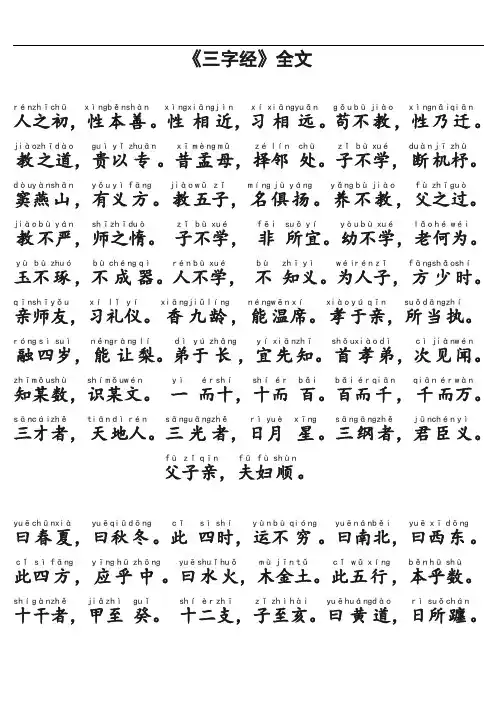 《三字经》全文
rénzhīchū xìngběnshàn xìngxiāngjìn xí xiāngyuǎn gǒubù jiào xìngnǎiqiān
人之初，性本善。性相近，习相远。苟不教，性乃迁。
jiàozhīdào guìyǐzhuān xīmèngmǔ zélínchù zǐbùxué duànjīzhù
教之道，贵以专。昔孟母，择邻处。子不学，断机杼。
dòuyànshān yǒuyìfāng jiàowǔzǐ míngjùyáng yǎngbùjiào fùzhīguò
窦燕山，有义方。教五子，名俱扬。养不教，父之过。
jiàobùyán shīzhīduò zǐbùxué fēi suǒyí yòubùxué lǎohéwéi
教不严，师之惰。子不学，非所宜。幼不学，老何为。
yùbùzhuó bùchéngqì rénbùxué bù zhīyì wéirénzǐ fāngshǎoshí
玉不琢，不成器。人不学，不知义。为人子，方少时。
qīnshīyǒu xílǐyí xiāngjiǔlíng néngwēnxí xiàoyúqīn suǒdāngzhí
亲师友，习礼仪。香九龄，能温席。孝于亲，所当执。
róngsìsuì néngrànglí dìyúzhǎng yíxiānzhī shǒuxiàodì cìjiànwén
融四岁，能让梨。弟于长，宜先知。首孝弟，次见闻。
zhīmǒushù shímǒuwén yì érshí shíérbǎi bǎiérqiān qiānérwàn
知某数，识某文。一而十，十而百。百而千，千而万。
sāncáizhě tiāndìrén sānguāngzhě rìyuèxīng sāngāngzhě jūnchényì
三才者，天地人。三光者，日月星。三纲者，君臣义。
fùzǐqīn fūfùshùn
父子亲，夫妇顺。
yuēchūnxià yuēqiūdōng cǐ sìshí yùnbùqióng yuēnánběi yuēxīdōng
曰春夏，曰秋冬。此四时，运不穷。曰南北，曰西东。
cǐsìfāng yīnghūzhōng yuēshuǐhuǒ mùjīntǔ cǐwǔxíng běnhūshù
此四方，应乎中。曰水火，木金土。此五行，本乎数。
shígànzhě jiǎzhìguǐ shíèrzhī zǐzhìhài yuēhuángdào rìsuǒchán
十干者，甲至癸。十二支，子至亥。曰黄道，日所躔。